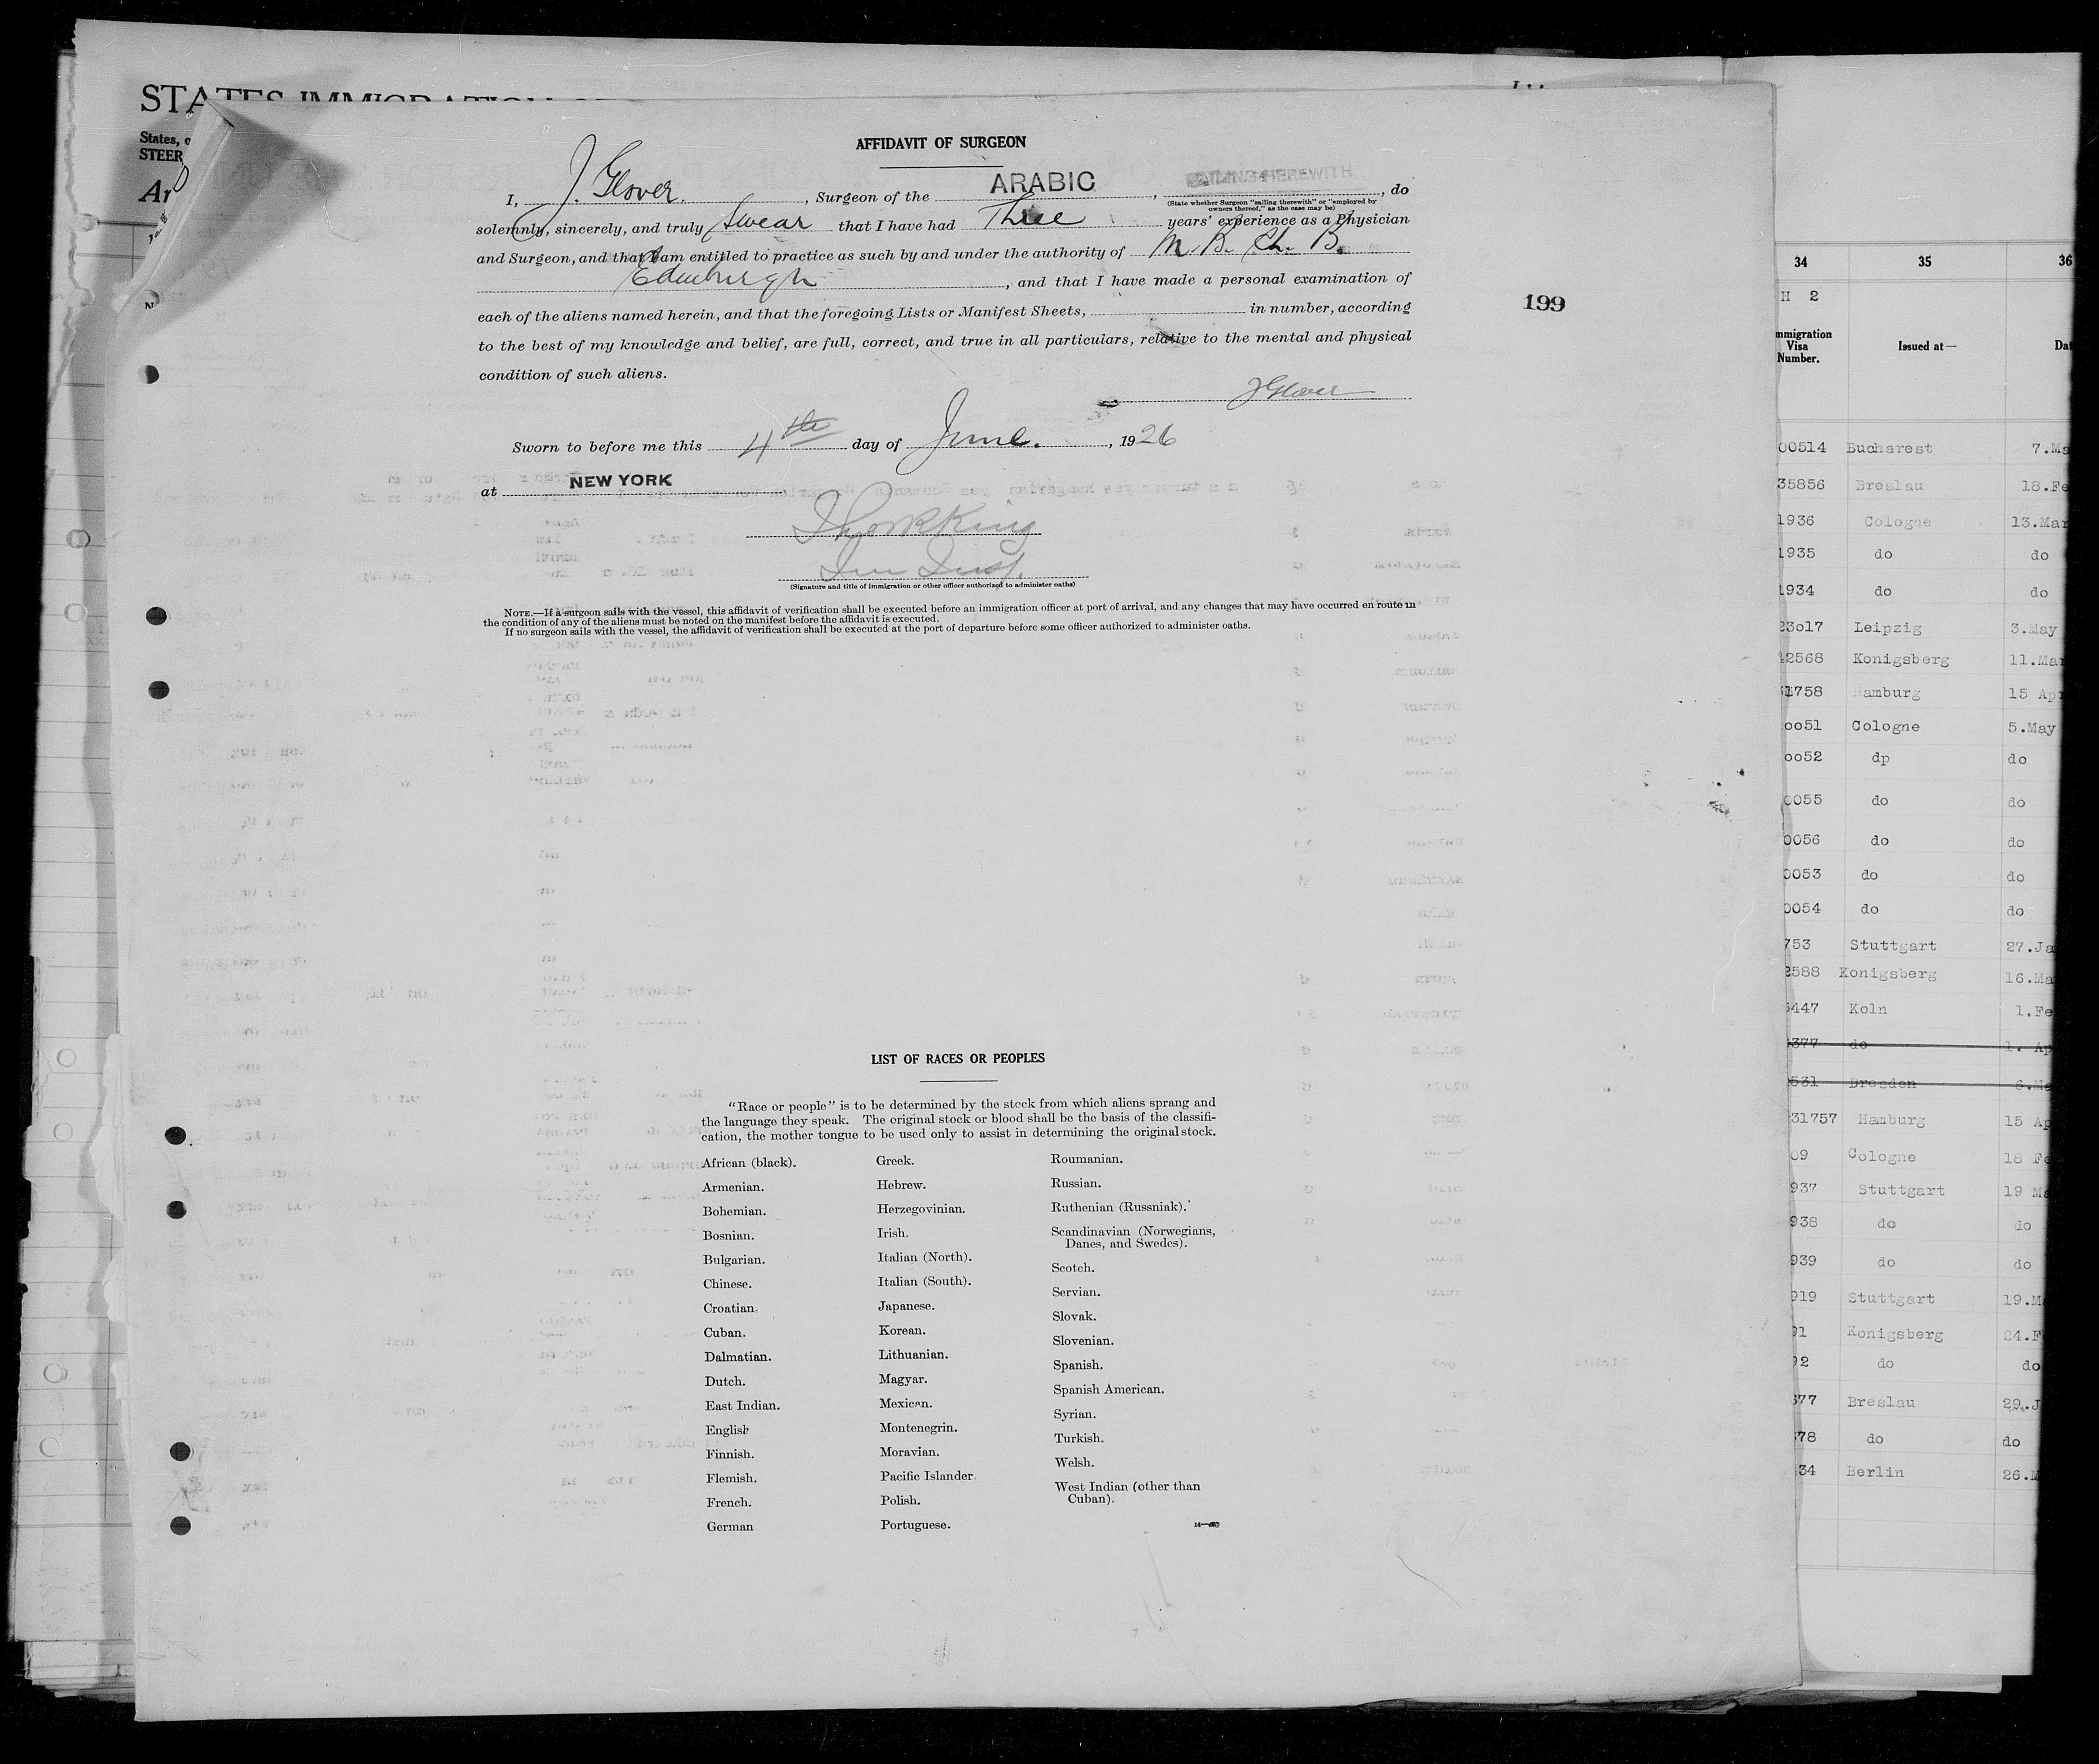 STATES IMMIGRATION
States, o
STEER
Ar
AFFIDAVIT OF SURGEON
I, J. Glover. , Surgeon of the ARABIC , SAILING HEREWITH , do
(State whether Surgeon "sailing therewith" or "employed by
owners thereof," as the case may be)
solemnly, sincerely, and truly Swear that I have had Three years' experience as a Physician
and Surgeon, and that I am entitled to practice as such by and under the authority of M. B. Ch. B.
Edinburgh , and that I have made a personal examination of
each of the aliens named herein, and that the foregoing Lists or Manifest Sheets, in number, according
to the best of my knowledge and belief, are full, correct, and true in all particulars, relative to the mental and physical
condition of such aliens.
J Glover
Sworn to before me this 4th day of June. , 1926
at NEW YORK
Imm Insp.
(Signature and title of immigration or other officer authorized to administer oaths)
NOTE.—If a surgeon sails with the vessel, this affidavit of verification shall be executed before an immigration officer at port of arrival, and any changes that may have occurred en route in
the condition of any of the aliens must be noted on the manifest before the affidavit is executed.
If no surgeon sails with the vessel, the affidavit of verification shall be executed at the port of departure before some officer authorized to administer oaths.
199
LIST OF RACES OR PEOPLES
"Race or people" is to be determined by the stock from which aliens sprang and
the language they speak. The original stock or blood shall be the basis of the classifi-
cation, the mother tongue to be used only to assist in determining the original stock.
African (black).
Armenian.
Bohemian.
Bosnian.
Bulgarian.
Chinese.
Croatian.
Cuban.
Dalmatian.
Dutch.
East Indian.
English
Finnish.
Flemish.
French.
German
Greek.
Hebrew.
Herzegovinian.
Irish.
Italian (North).
Italian (South).
Japanese.
Korean.
Lithuanian.
Magyar.
Mexican.
Montenegrin.
Moravian.
Pacific Islander
Polish.
Portuguese.
Roumanian.
Russian.
Ruthenian (Russniak).
Scandinavian (Norwegians,
Danes, and Swedes).
Scotch.
Servian.
Slovak.
Slovenian.
Spanish.
Spanish American.
Syrian.
Turkish.
Welsh.
West Indian (other than
Cuban).
34 35 36
H 2
mmigration
Visa
Number.
Issued at—
Dat
00514 Bucharest 7.Ma
35856 Breslau 18.Fe
1936 Cologne 13.Mar
1935 do do
1934 do do
23o17 Leipzig 3.May
42568 Konigsberg 11.Mar
31758 Hamburg 15 Apr
oo51 Cologne 5.May
oo52 dp do
0055 do do
0056 do do
0053 do do
0054 do do
753 Stuttgart 27.Ja
2588 Konigsberg 16.Ma
5447 Koln 1.Fe
377 do 1. Ap
531 Dresden 6.Ma
31757 Hamburg 15 Ap
09 Cologne 18 Fe
937 Stuttgart 19 Ma
938 do do
939 do do
919 Stuttgart 19.M
91 Konigsberg 24.F
92 do do
677 Breslau 29.J
678 do do
34 Berlin 26.M